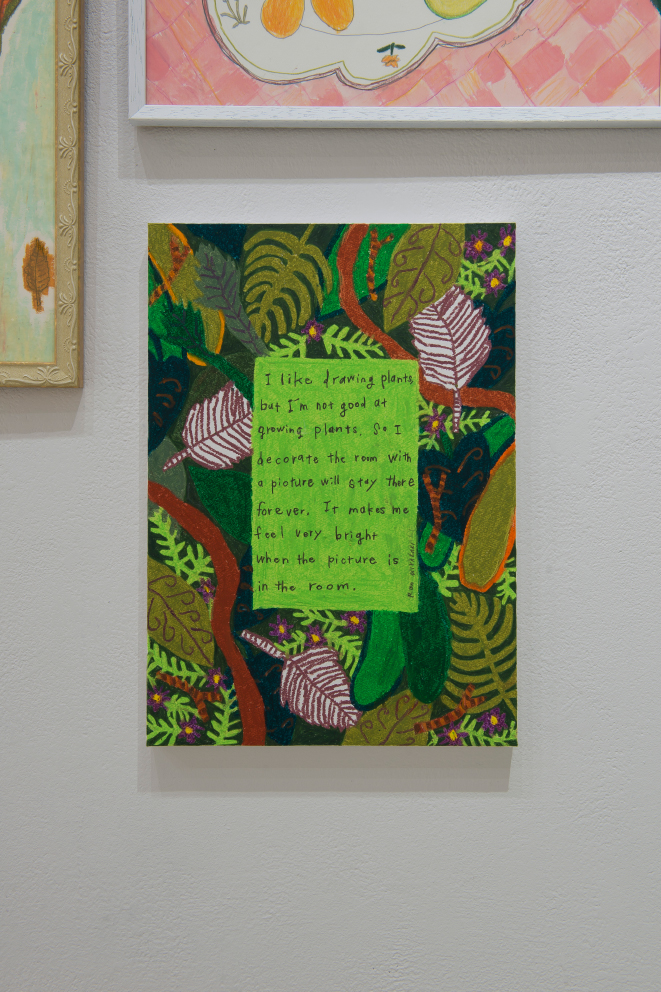 I like drawing plants
but I'm not good at
growing plants. So I
decorate the room with
a picture will stay there
forever. It makes me
feel very bright
when the picture is
in the room.